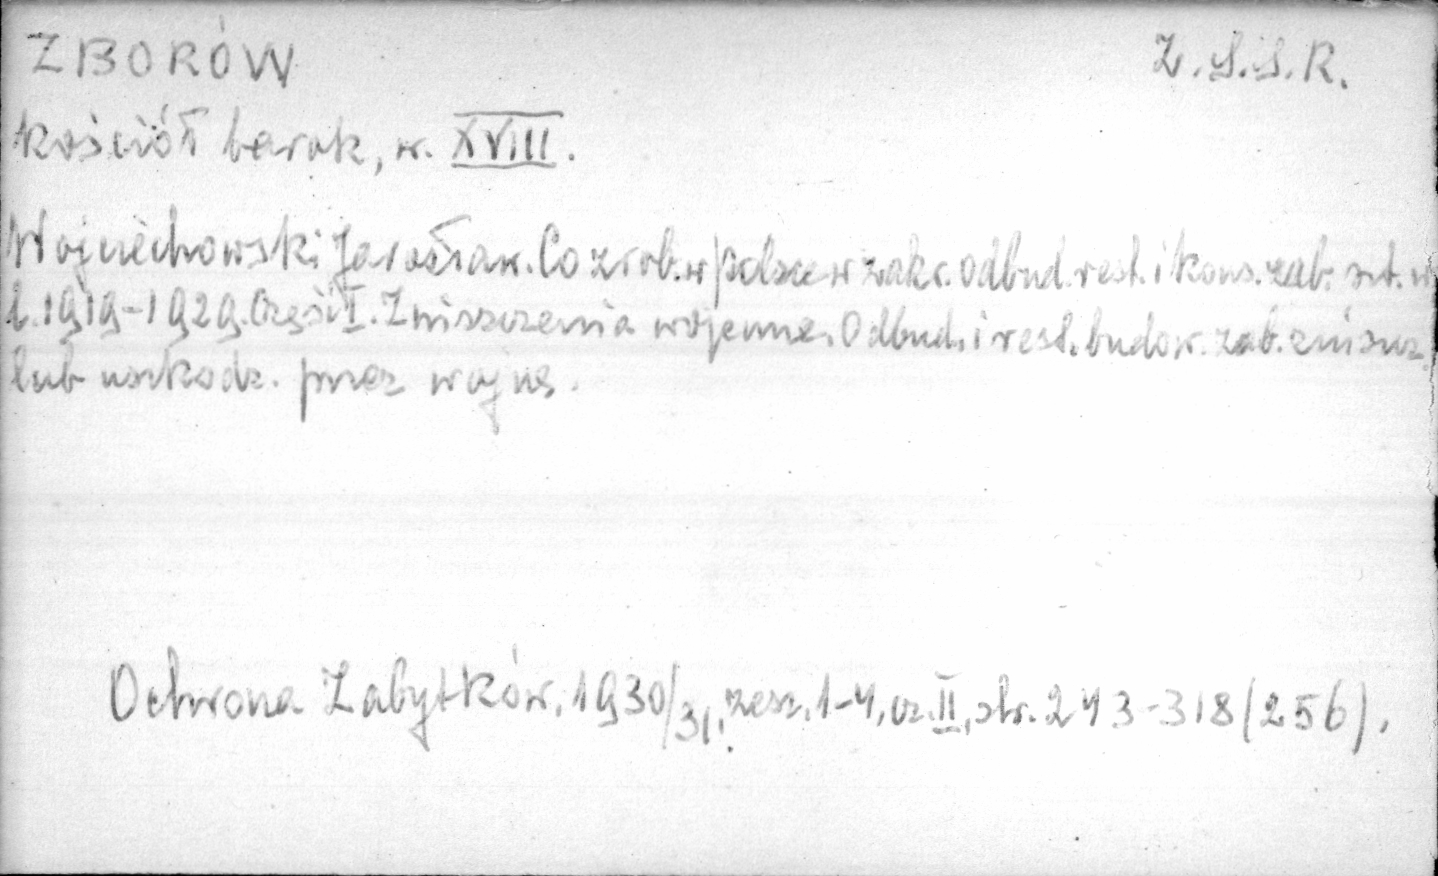 ZBORÓW Z.S.S.R.
kościół barok, w. XVIII.
Wojciechowski Jarosław. Co zrob. w Polsce w zakr. odbud. rest. i kons. zab. szt. w
l. 1919-1929. Część I. Zniszczenia wojenne. Odbud. i rest. budow. zab. zniszcz.
lub uszkodz. przez wojnę.
Ochrona Zabytków, 1930/31, zesz. 1-4, cz. II, str. 243-318 (256).